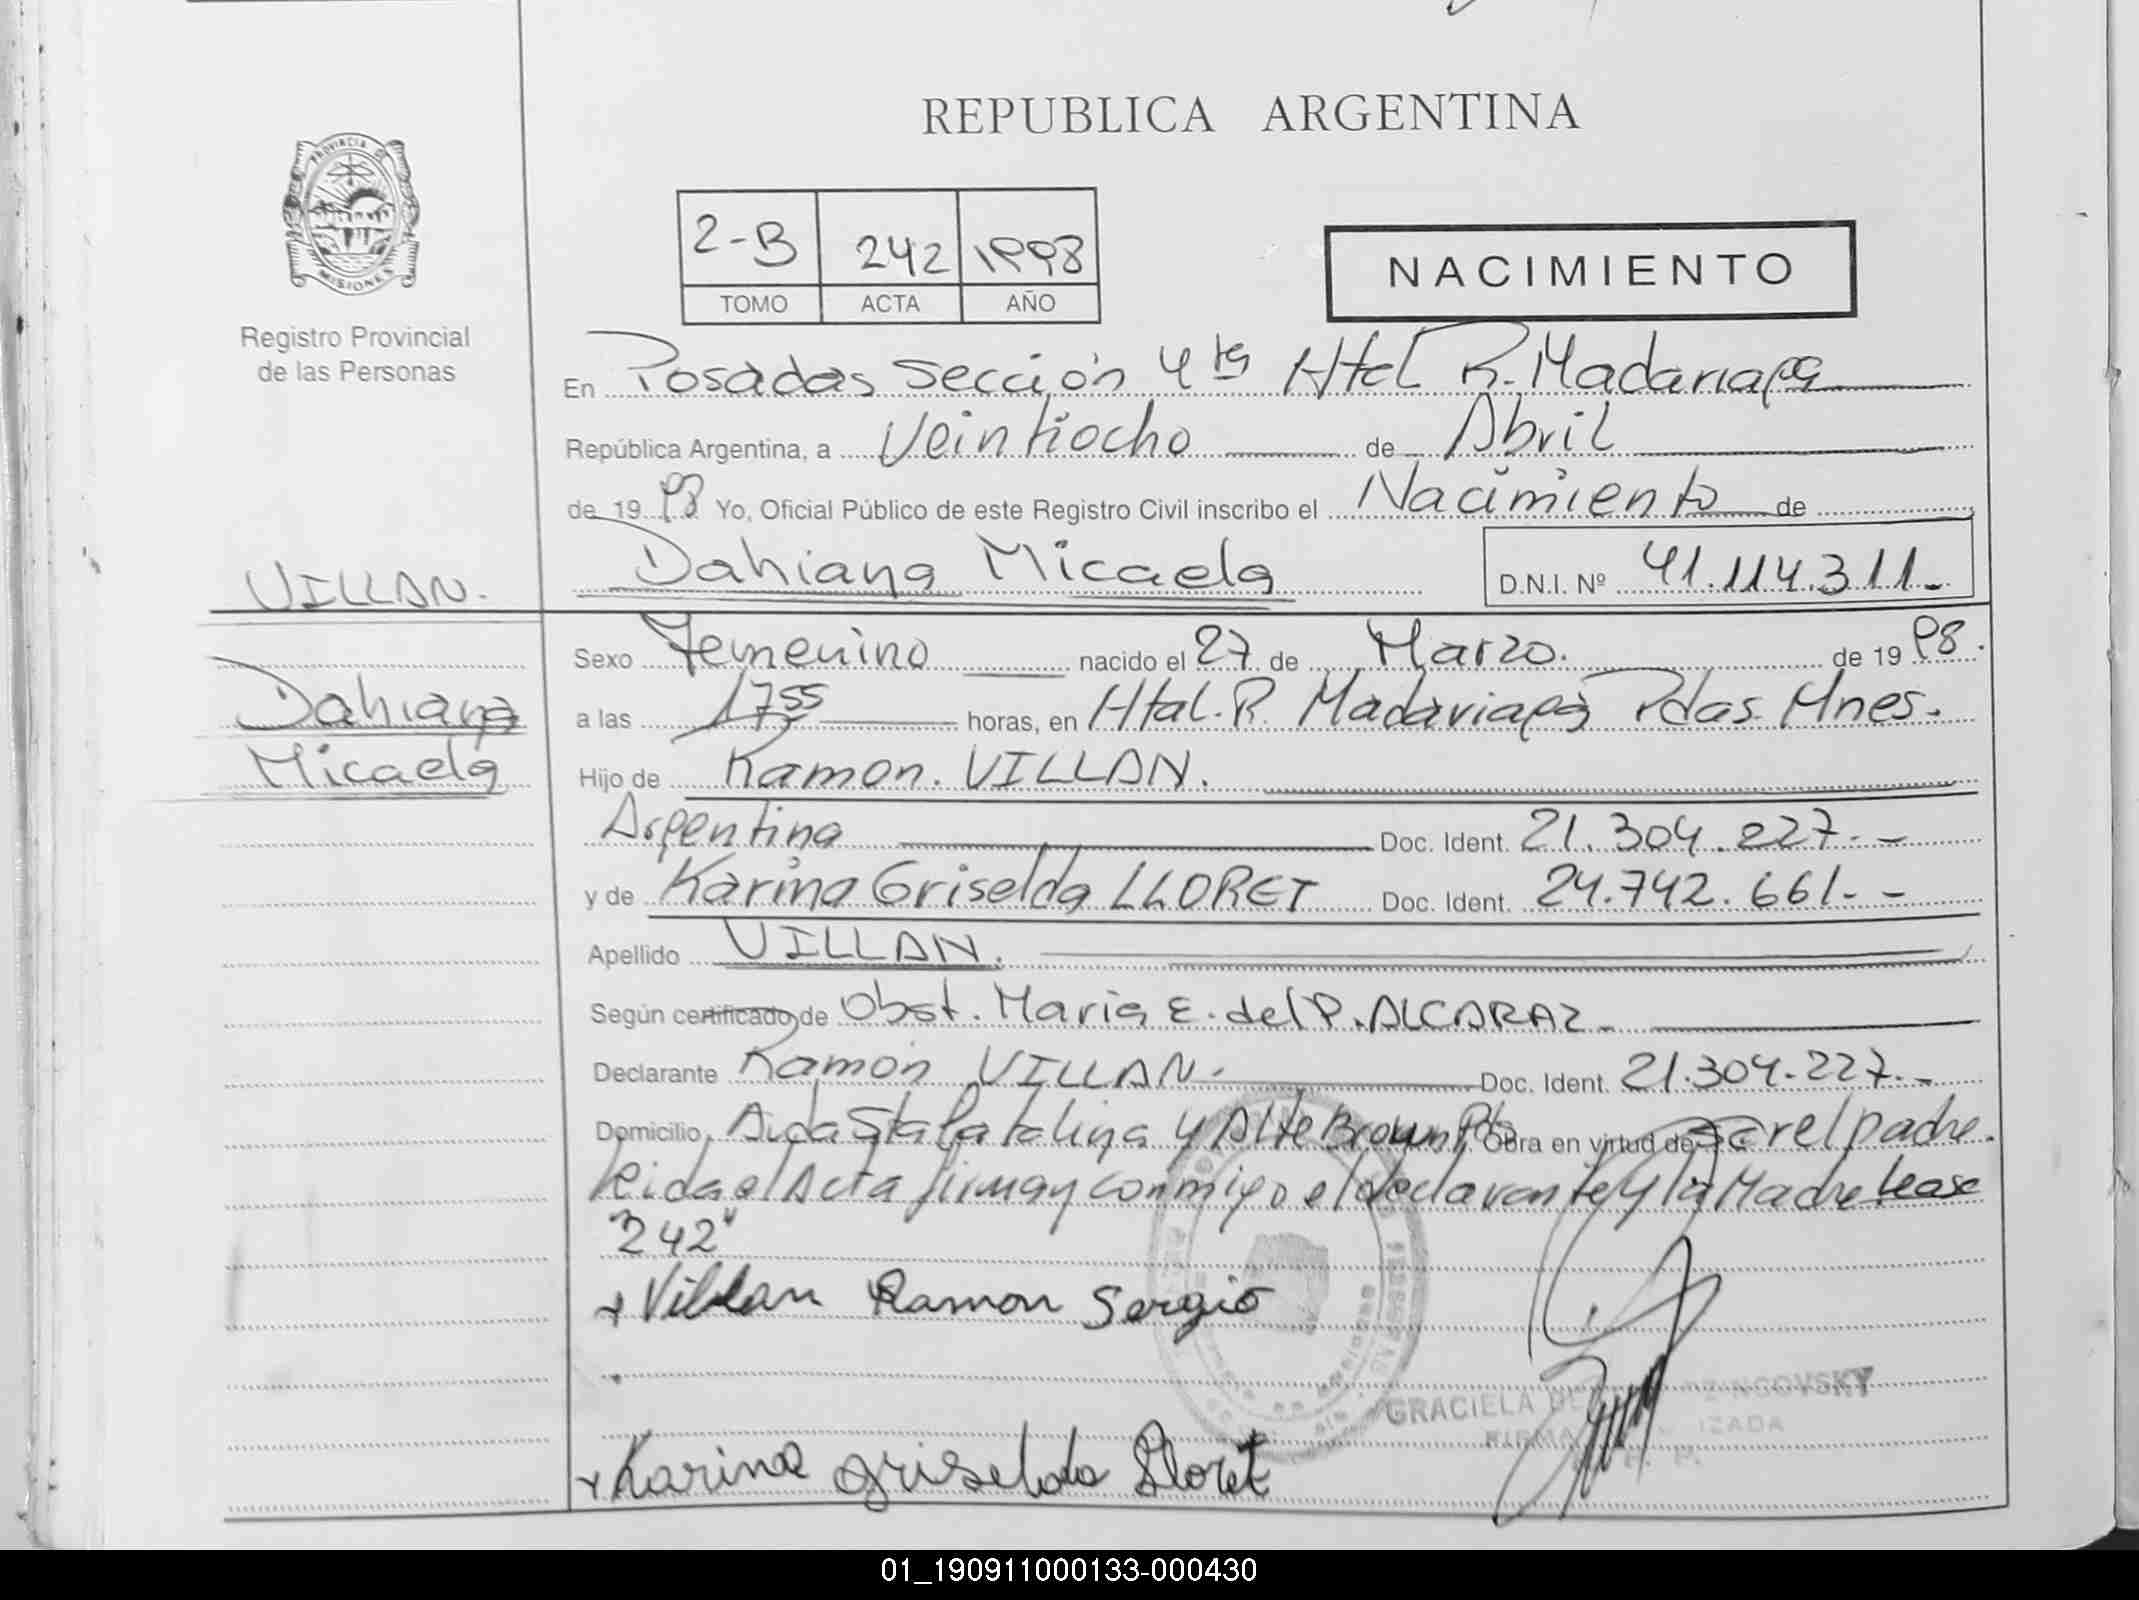 REPUBLICA ARGENTINA
PROVINCIA DE
MISIONES
Registro Provincial
de las Personas
2-B 242 1998
TOMO ACTA AÑO
NACIMIENTO
En Posadas Sección 4ta Htal R. Madariaga
República Argentina, a Veintiocho de Abril
de 19 98 Yo, Oficial Público de este Registro Civil inscribo el Nacimiento de
Dahiana Micaela
D.N.I. Nº 41.114.311.-
VILLAN.
Dahiana
Micaela
Sexo Femenino nacido el 27 de Marzo. de 19 98.
a las 17 55 horas, en Htal. R. Madariaga Pdas Mnes.
Hijo de Ramon. VILLAN.
Argentina Doc. Ident. 21.304.227.-
y de Karina Griselda LLORET Doc. Ident. 24.742.661.-
Apellido VILLAN.
Según certificado de Obst. Maria E. del P. ALCARAZ-
Declarante Ramón VILLAN. Doc. Ident. 21.304.227.-
Domicilio Avda Sta Catalina y Alte Brown Pdas Obra en virtud de Ser el padre.
leida el Acta firman conmigo el declarante y la Madre Lease
"242"
Villan Ramon Sergio
GRACIELA
Karina Griselda Lloret
01_190911000133-000430